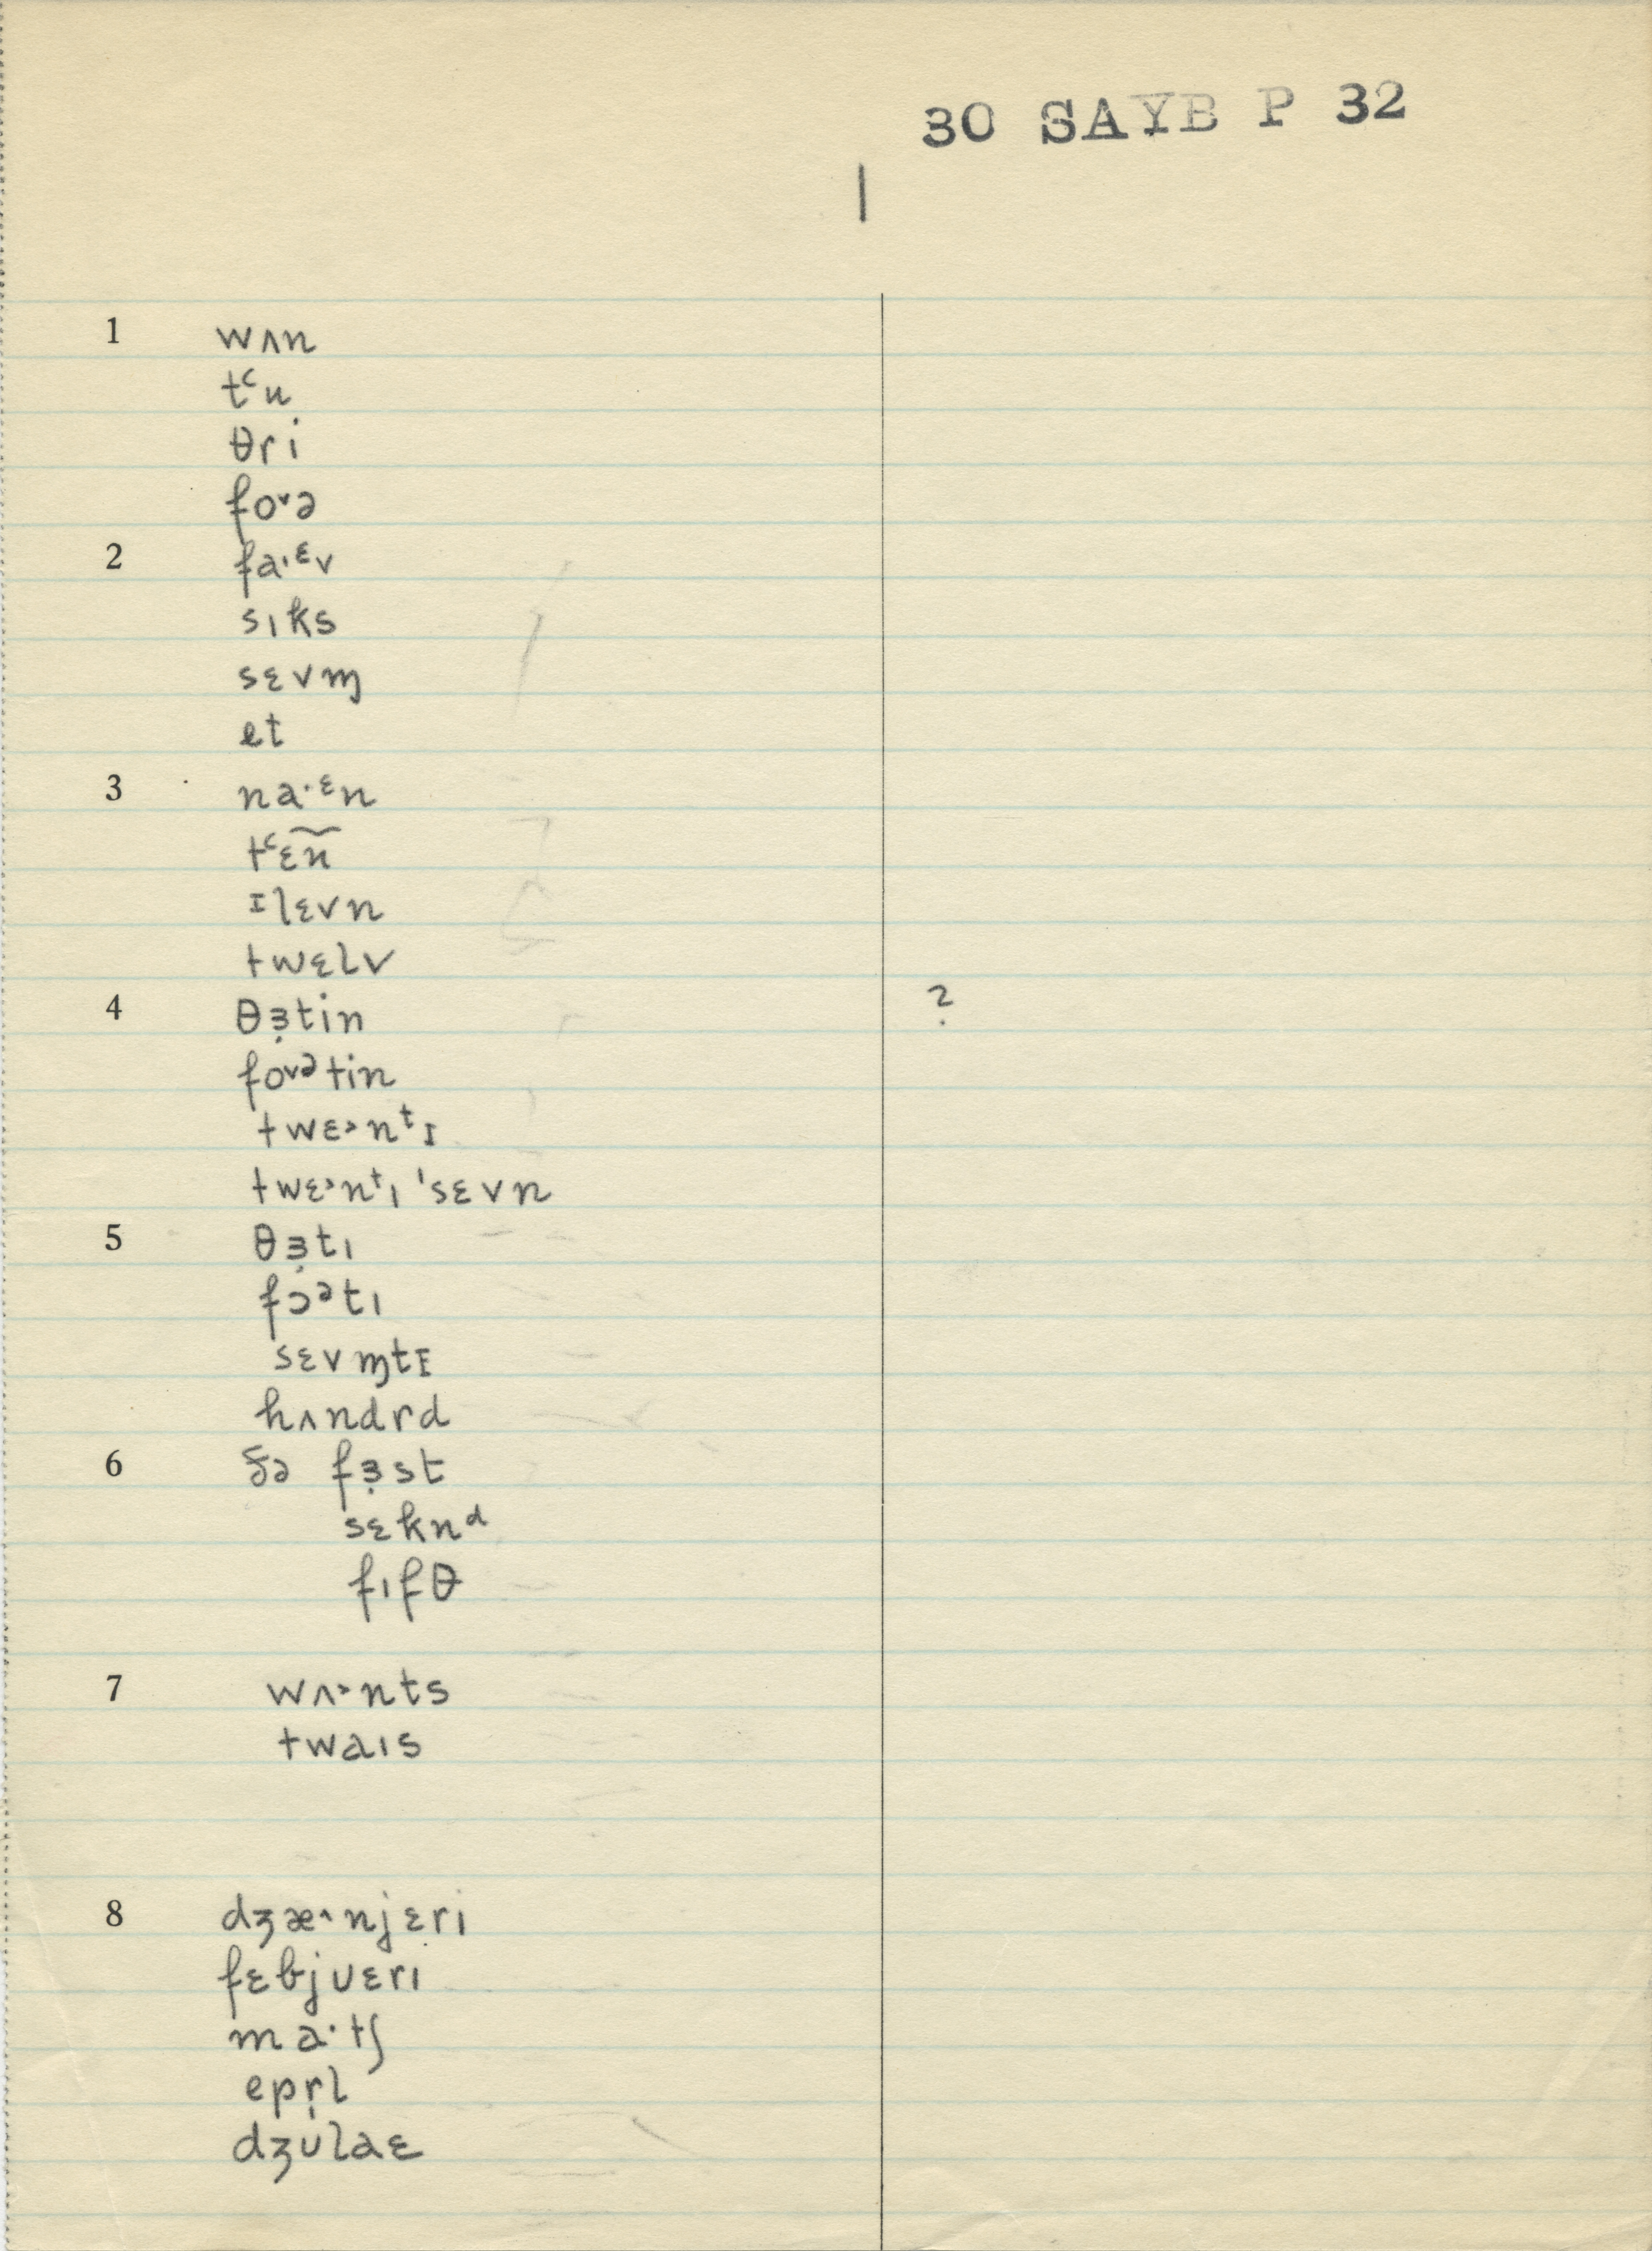 30 SAYB P 32
1
1 wʌn
tʿu
θri
fo˅ə
2 fa·ᵋv
sıks
sɛvɱ
et
3 na·ᵋn
tʿɛ͠n
ɪlɛvn
twɛlv
4 θɜ̣tin ?
fo˅ᵊtin
twɛ˃nᵗɪ
twɛ˃nᵗı ˈsɛvn
5 θɜ̣tı
fɔᵊtı
sɛvɱtɪ
hʌndrd
6 ðə fɜ̣st
sɛknᵈ
fıfθ
7 wʌ˃nts
twaıs
8 dʒæ˄njɛrı
fɛbjuɛrı
ma·tʃ
epr̩l
dʒulaɛ